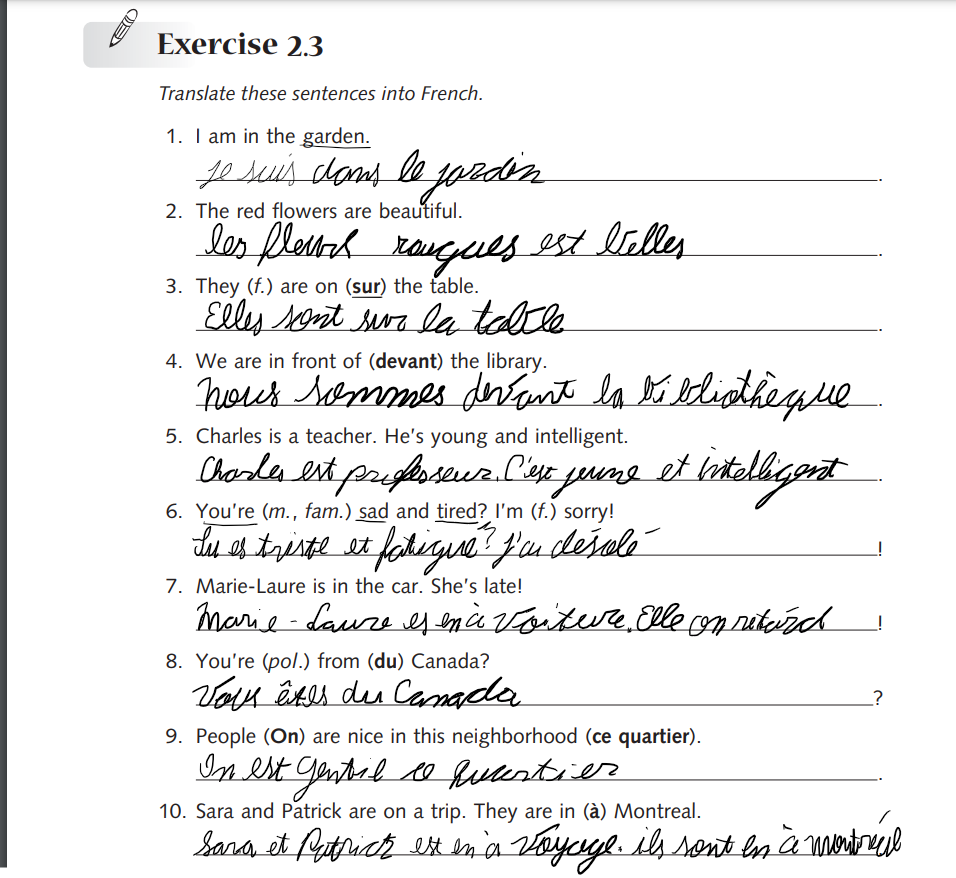 Exercise 2.3
Translate these sentences into French.
1. I am in the garden.
je suis dans le jardin.
2. The red flowers are beautiful.
les fleurs rougues est belles.
3. They (f.) are on (sur) the table.
Elles sont sur la table.
4. We are in front of (devant) the library.
nous sommes devant la bibliothèque.
5. Charles is a teacher. He's young and intelligent.
Charles est professeur. C'est jeune et intelligent.
6. You're (m., fam.) sad and tired? I'm (f.) sorry!
Tu es triste et fatigué? j'ai désolé!
7. Marie-Laure is in the car. She's late!
Marie-Laure es en à voiture. Elle en retard!
8. You're (pol.) from (du) Canada?
Vous êtes du Canada?
9. People (On) are nice in this neighborhood (ce quartier).
On est gentil ce quartier.
10. Sara and Patrick are on a trip. They are in (à) Montreal.
Sara et Patrick est en à voyage. ils sont en à montréal